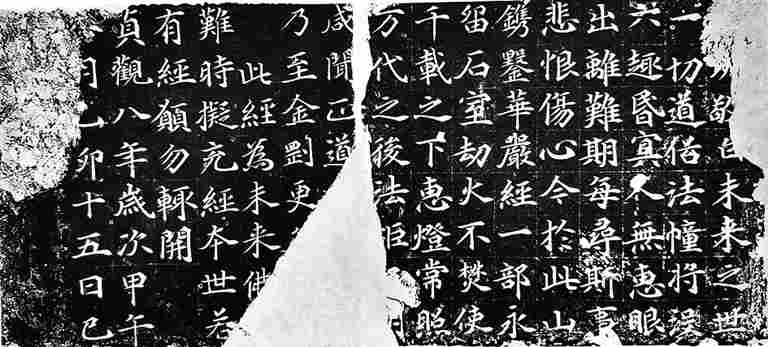 敬白未来之世
一切道俗法幢将没
六趣昏冥人無惠眼
出離難期每尋斯事
悲恨傷心今於此山
鐫鑿華嚴經一部永
留石室劫火不焚使
千載之下惠燈常照
万代之後法炬
咸聞正道
乃至金剛更
此經為未来佛
難時擬充經本世若
有經願勿輙開
貞觀八年歲次甲午
月乙卯十五日己